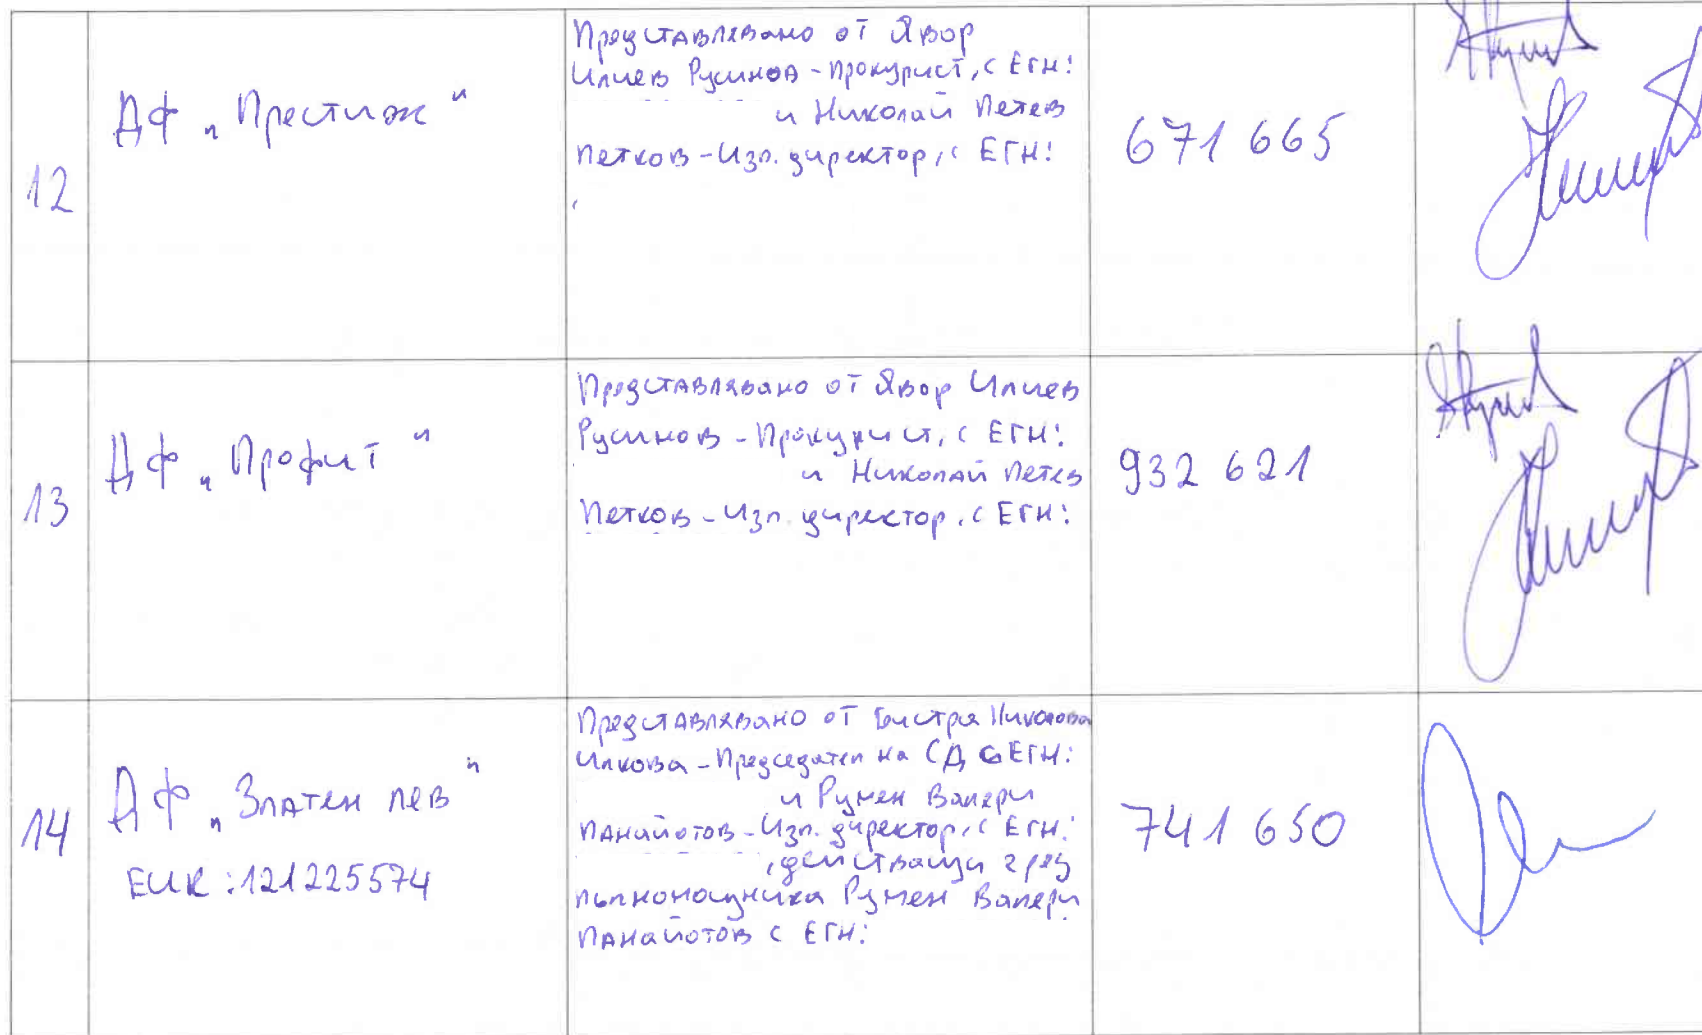 12
ДФ „Престиж“
Представлявано от Явор
Илиев Русинов - прокурист, с ЕГН:
и Николай Петев
Петков - Изп. директор, с ЕГН:
671 665
13
ДФ „Профит“
Представлявано от Явор Илиев
Русинов - Прокурист, с ЕГН:
и Николай Петев
Петков - Изп. директор, с ЕГН:
932 621
14
ДФ „Златен лев“
ЕИК: 121225574
Представлявано от Бистра Николова
Илкова - Председател на СД с ЕГН:
и Румен Валери
Панайотов - Изп. директор, с ЕГН:
, действащи чрез
пълномощника Румен Валери
Панайотов с ЕГН:
741 650